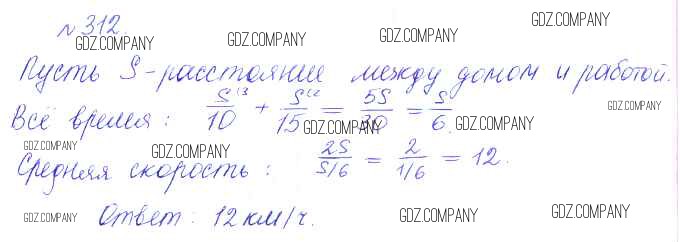 № 312.
GDZ.COMPANY GDZ.COMPANY GDZ.COMPANY
Пусть S - расстояние между домом и работой.
Всё время: S^(3/10 + S^(2/15 = 5S/30 = S/6.
GDZ.COMPANY GDZ.COMPANY GDZ.COMPANY
GDZ.COMPANY GDZ.COMPANY
Средняя скорость: 2S/S/6 = 2/1/6 = 12.
GDZ.COMPANY GDZ.COMPANY GDZ.COMPANY GDZ.COMPANY
Ответ: 12 км/ч.